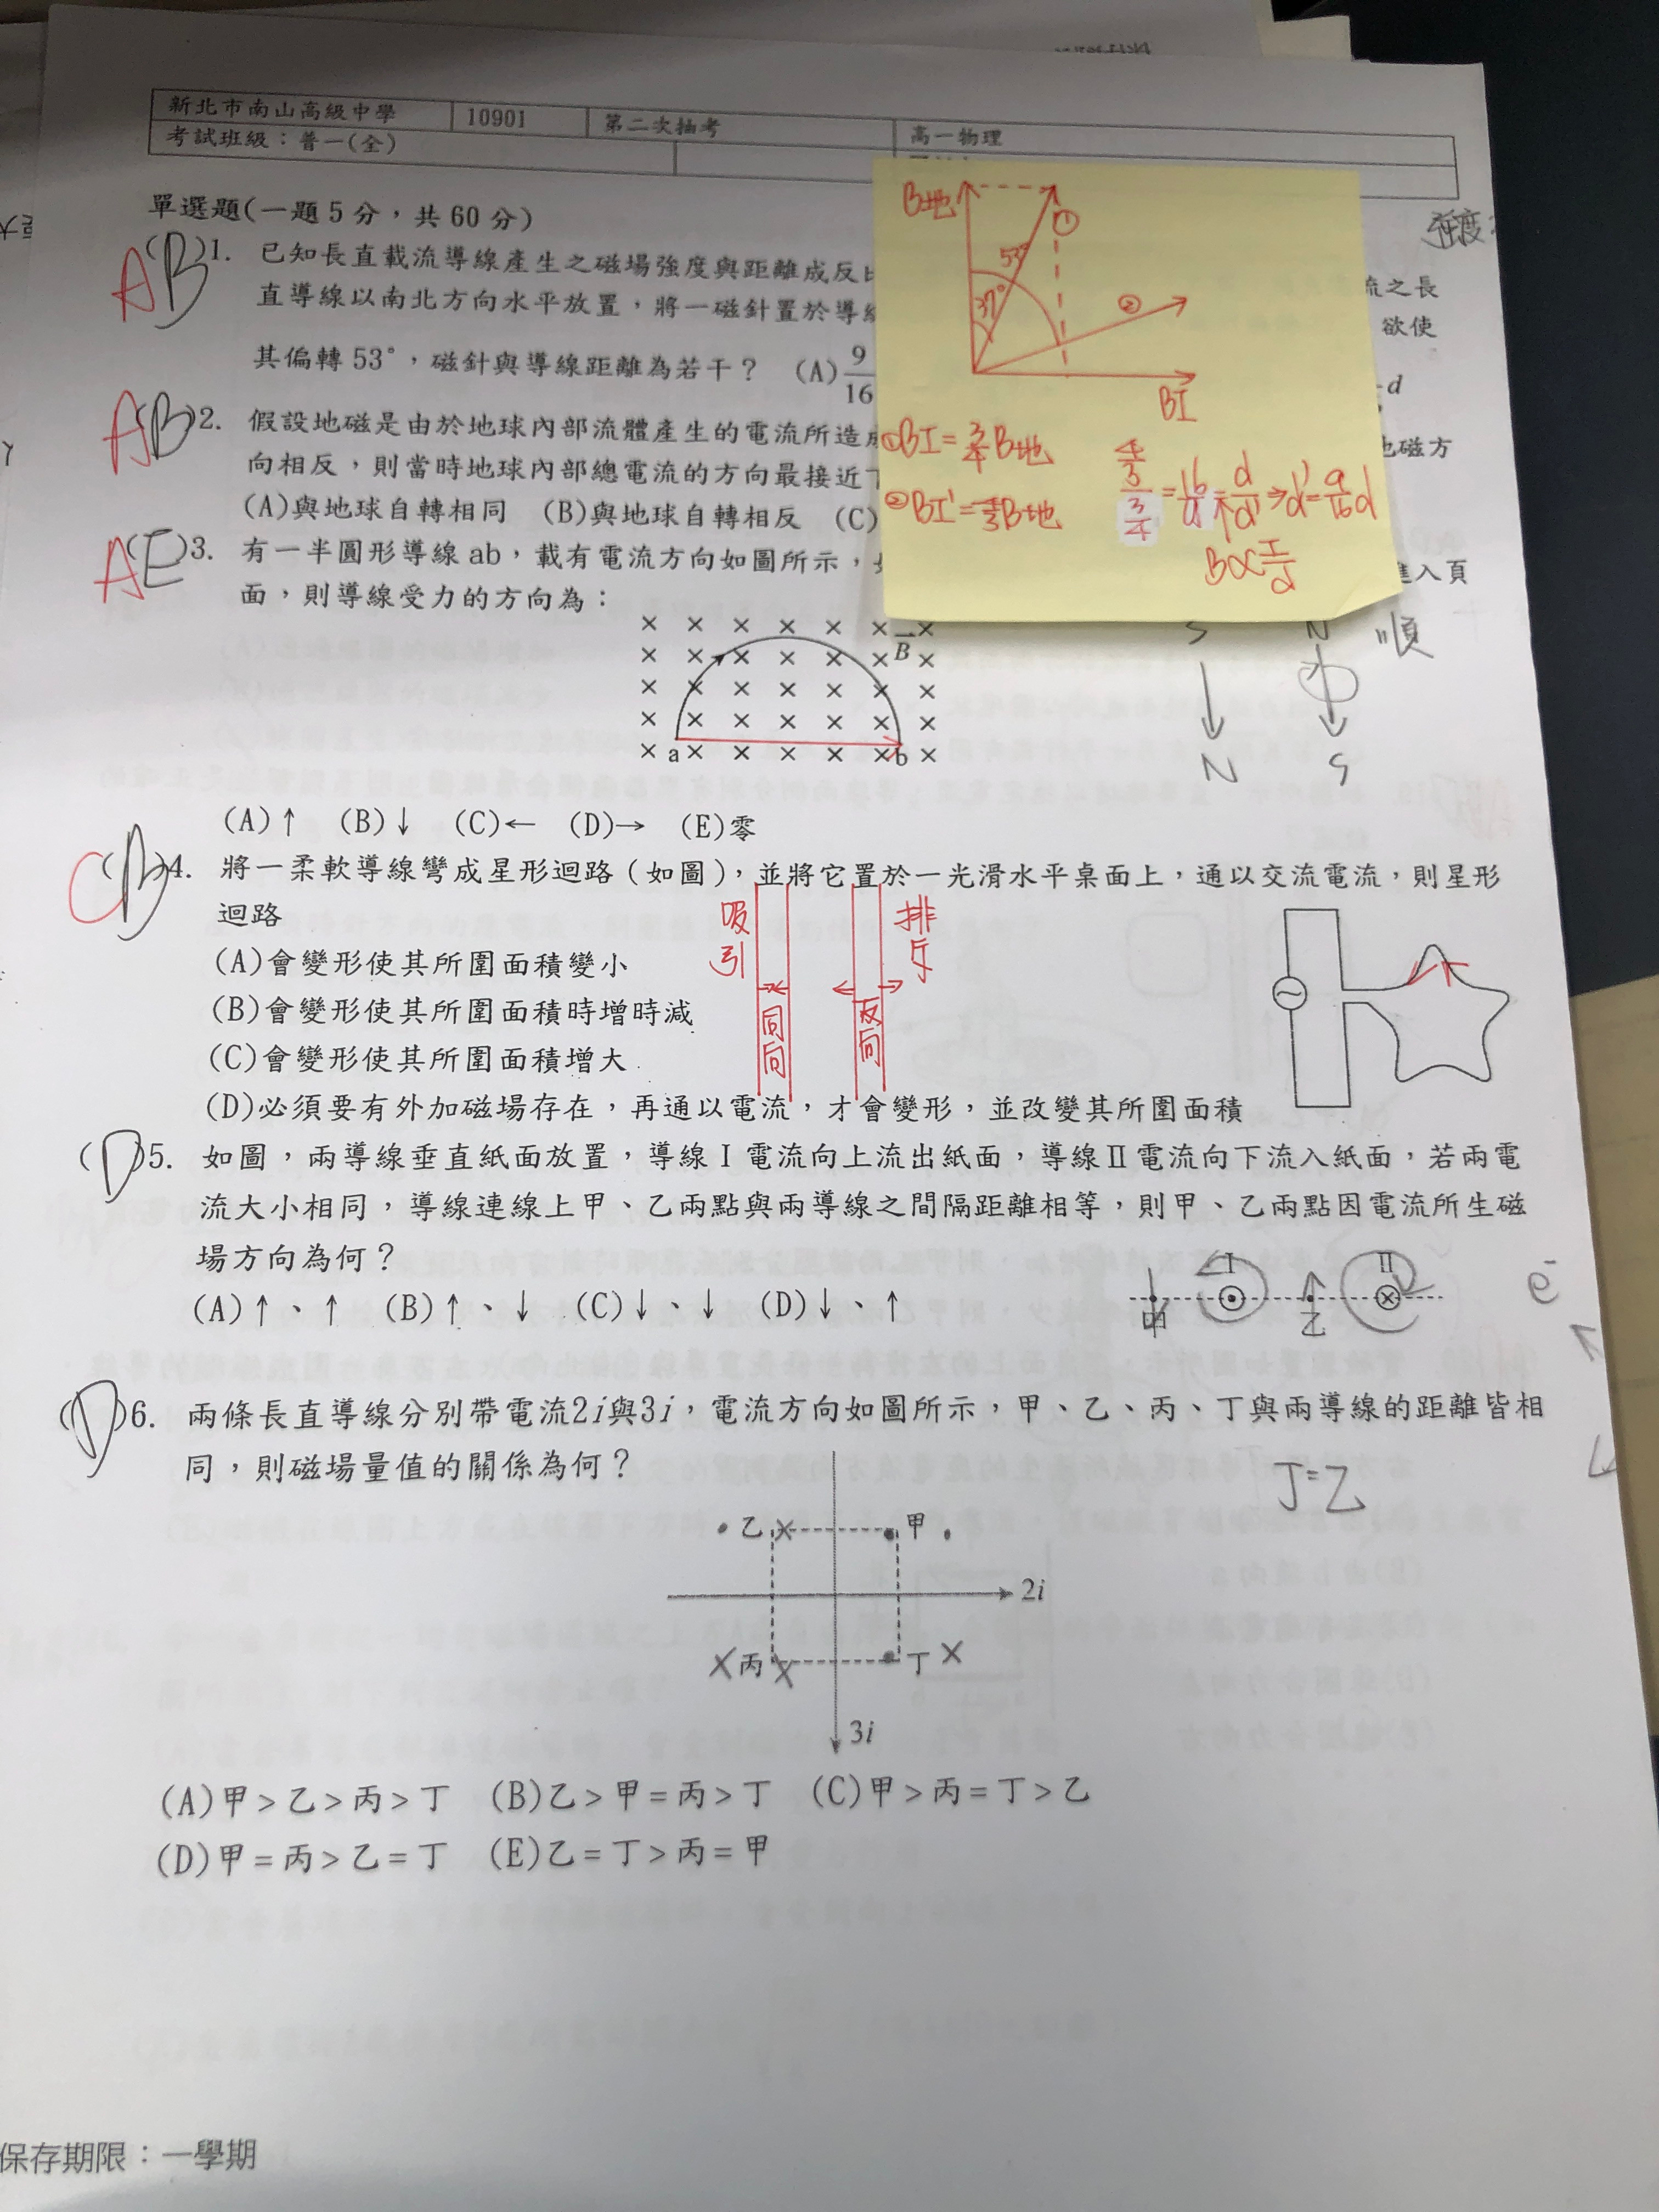 新北市南山高級中學 10901 第二次抽考 高一物理
考試班級：普一(全)
單選題(一題5分，共60分)
A (B)1. 已知長直載流導線產生之磁場強度與距離成反比
流之長
直導線以南北方向水平放置，將一磁針置於導線
欲使
其偏轉53°，磁針與導線距離為若干？ (A)9/16
d
A (B)2. 假設地磁是由於地球內部流體產生的電流所造成
地磁方
向相反，則當時地球內部總電流的方向最接近下
(A)與地球自轉相同 (B)與地球自轉相反 (C)
A (E)3. 有一半圓形導線ab，載有電流方向如圖所示，
進入頁
面，則導線受力的方向為：
B地
①
53°
37°
②
BI
①BI=3/4B地
②BI'=4/3B地
4/3 / 3/4 = 16/9 = d/d' ⇒ d'=9/16d
B∝I/d
強度
× × × × × × ×
× × × × × × B ×
× × × × × × ×
× × × × × × ×
× a × × × × × b ×
S N 順
N S
(A)↑ (B)↓ (C)← (D)→ (E)零
C (D)4. 將一柔軟導線彎成星形迴路（如圖），並將它置於一光滑水平桌面上，通以交流電流，則星形
迴路
(A)會變形使其所圍面積變小
(B)會變形使其所圍面積時增時減
(C)會變形使其所圍面積增大
(D)必須要有外加磁場存在，再通以電流，才會變形，並改變其所圍面積
吸引
同向
反向
排斥
(D)5. 如圖，兩導線垂直紙面放置，導線Ⅰ電流向上流出紙面，導線Ⅱ電流向下流入紙面，若兩電
流大小相同，導線連線上甲、乙兩點與兩導線之間隔距離相等，則甲、乙兩點因電流所生磁
場方向為何？
(A)↑、↑ (B)↑、↓ (C)↓、↓ (D)↓、↑
Ⅰ Ⅱ
甲 乙
e⁻
(D)6. 兩條長直導線分別帶電流2i與3i，電流方向如圖所示，甲、乙、丙、丁與兩導線的距離皆相
同，則磁場量值的關係為何？
丁=乙
乙 × 甲
2i
× 丙 × 丁 ×
3i
(A)甲＞乙＞丙＞丁 (B)乙＞甲＝丙＞丁 (C)甲＞丙＝丁＞乙
(D)甲＝丙＞乙＝丁 (E)乙＝丁＞丙＝甲
保存期限：一學期